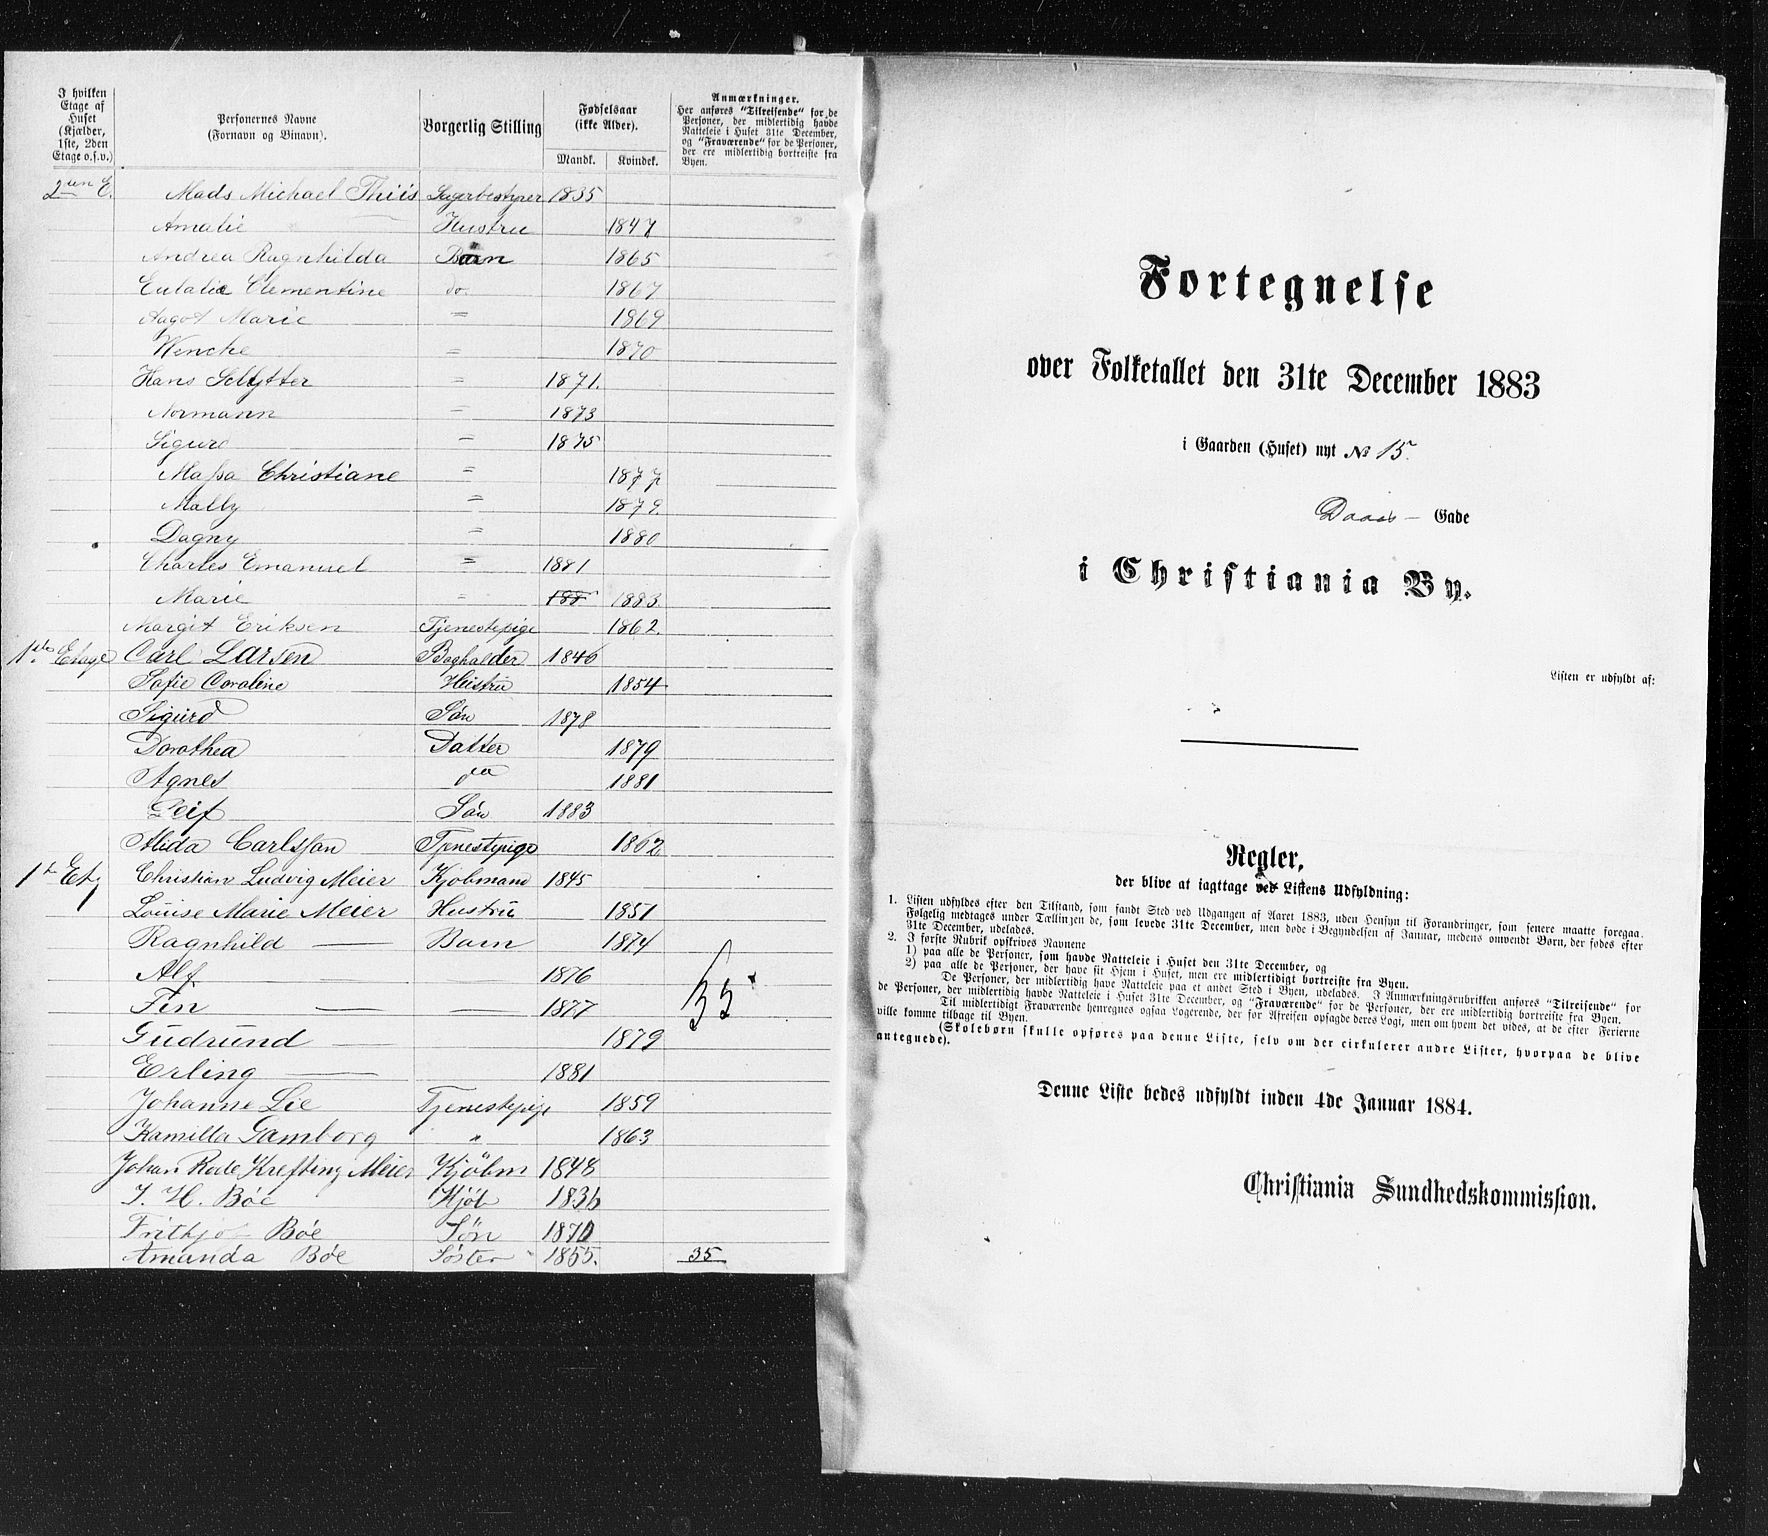 I hvilken Etage af Huset (Kjælder, 1ste, 2den Etage o.s.v.) | Personernes Navne (Fornavn og Binavn). | Borgerlig Stilling | Fødselsaar (ikke Alder). Mandk. Kvindek. | Anmærkninger. Her anføres "Tilreisende" for de Personer, der midlertidig havde Natteleie i Huset 31te December, og "Fraværende" for de Personer, der ere midlertidig bortreiste fra Byen.
2den E. Mads Michael Thiis Lagerbestyrer 1835
Amalie Hustru 1847
Andrea Ragnhilda Børn 1865
Eulalie Clementine do. 1867
Aagot Marie " 1869
Wenche " 1870
Hans Schytter " 1871.
Normann " 1873
Sigurd " 1875
Massa Christiane " 1877
Mally " 1879.
Dagny " 1880
Charles Emanuel " 1881
Marie " 188 1883.
Margit Eriksen Tjenestepige 1862.
1ste Etage Carl Larsen Bogholder 1846
Sofie Caroline Hustru 1854
Sigurd Søn 1878
Dorothea Datter 1879
Agnes do 1881
Leif Søn 1883
Alida Carlsson Tjenestepige 1862
1ste Etg Christian Ludvig Meier Kjøbmand 1845
Louise Marie Meier Hustru 1851
Ragnhild — Barn 1874
Alf 1876
Fin — — 1877
55
Gudrund — 1879
Erling — 1881
Johanne Lie Tjenestepige 1859
Kamilla Gamborg " 1863
Johan Rode Krefting Meier Kjöbm 1848
I. H. Böe Kjöb 1836
Frithjof Böe Sön 1870
Amanda Böe Söster 1855. 35
Fortegnelse
over Folketallet den 31te December 1883
i Gaarden (Huset) nyt № 15.
Daas — Gade
i Christiania By.
Listen er udfyldt af:
Regler,
der blive at iagttage ved Listens Udfyldning:
1. Listen udfyldes efter den Tilstand, som fandt Sted ved Udgangen af Aaret 1883, uden Hensyn til Forandringer, som senere maatte foregaa.
Følgelig medtages under Tællingen de, som levede 31te December, men døde i Begyndelsen af Januar, medens omvendt Børn, der fødes efter
31te December, udelades.
2. I første Rubrik opskrives Navnene
1) paa alle de Personer, som havde Natteleie i Huset den 31te December, og
2) paa alle de Personer, der have sit Hjem i Huset, men ere midlertidigt bortreiste fra Byen.
De Personer, der midlertidig have Natteleie paa et andet Sted i Byen, udelades. I Anmærkningsrubrikken anføres "Tilreisende" for
de Personer, der midlertidig havde Natteleie i Huset 31te December, og "Fraværende" for de Personer, der ere midlertidig bortreiste fra Byen.
Til midlertidigt Fraværende henregnes ogsaa Logerende, der før Afreisen opsagde deres Logi, men om hvem det vides, at de efter Ferierne
ville komme tilbage til Byen.
(Skolebørn skulle opføres paa denne Liste, selv om der cirkulerer andre Lister, hvorpaa de blive
antegnede).
Denne Liste bedes udfyldt inden 4de Januar 1884.
Christiania Sundhedskommission.